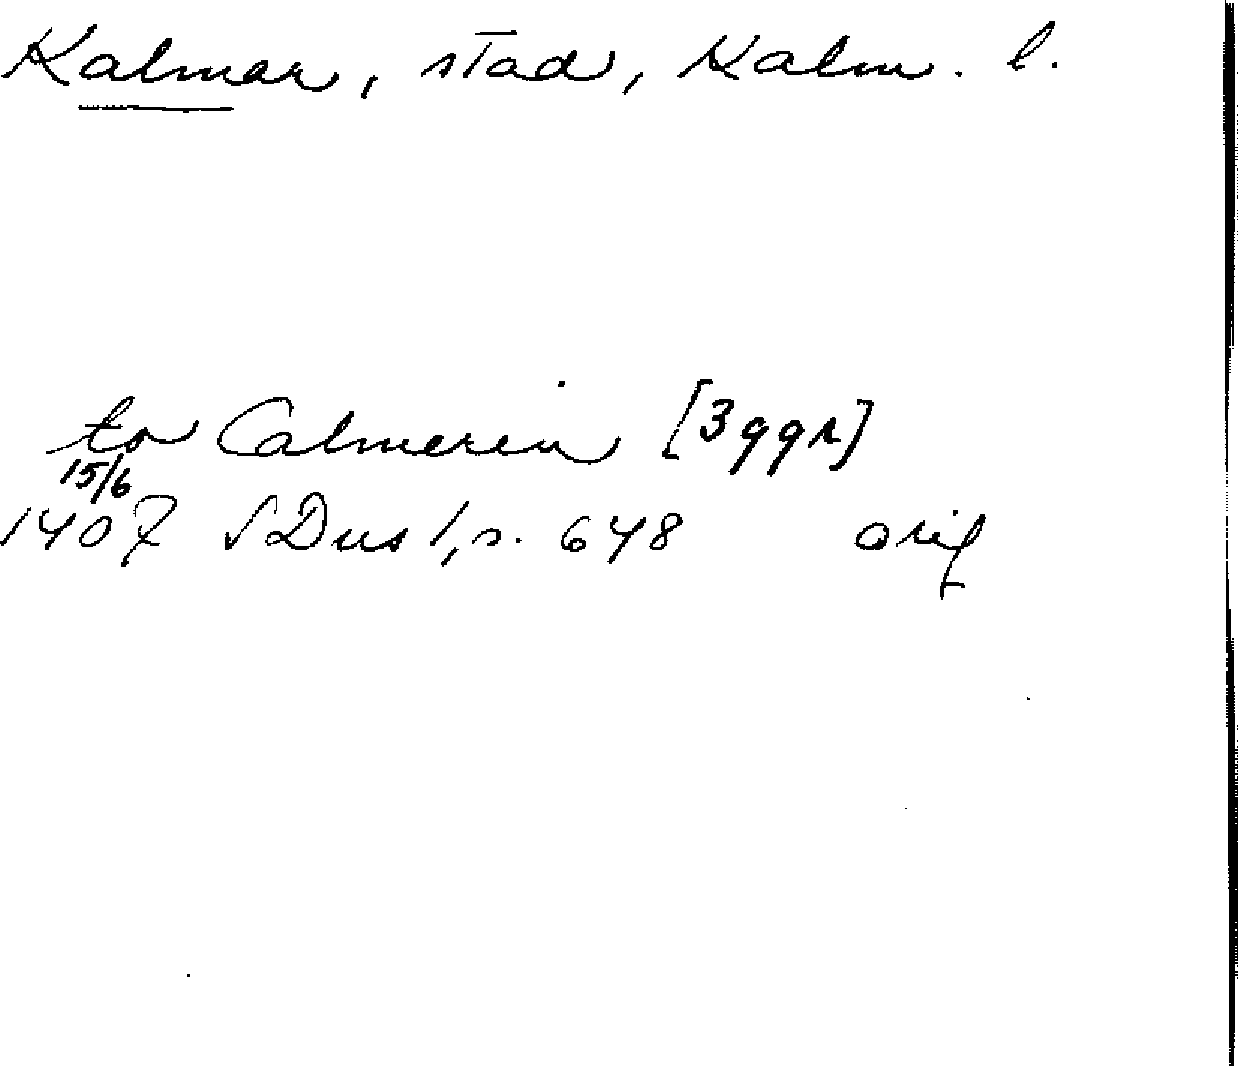 Kalmar, stad, Kalm. l.
to Calmeren [3 ggr]
15/6
1407 SDns 1, s. 648 orig